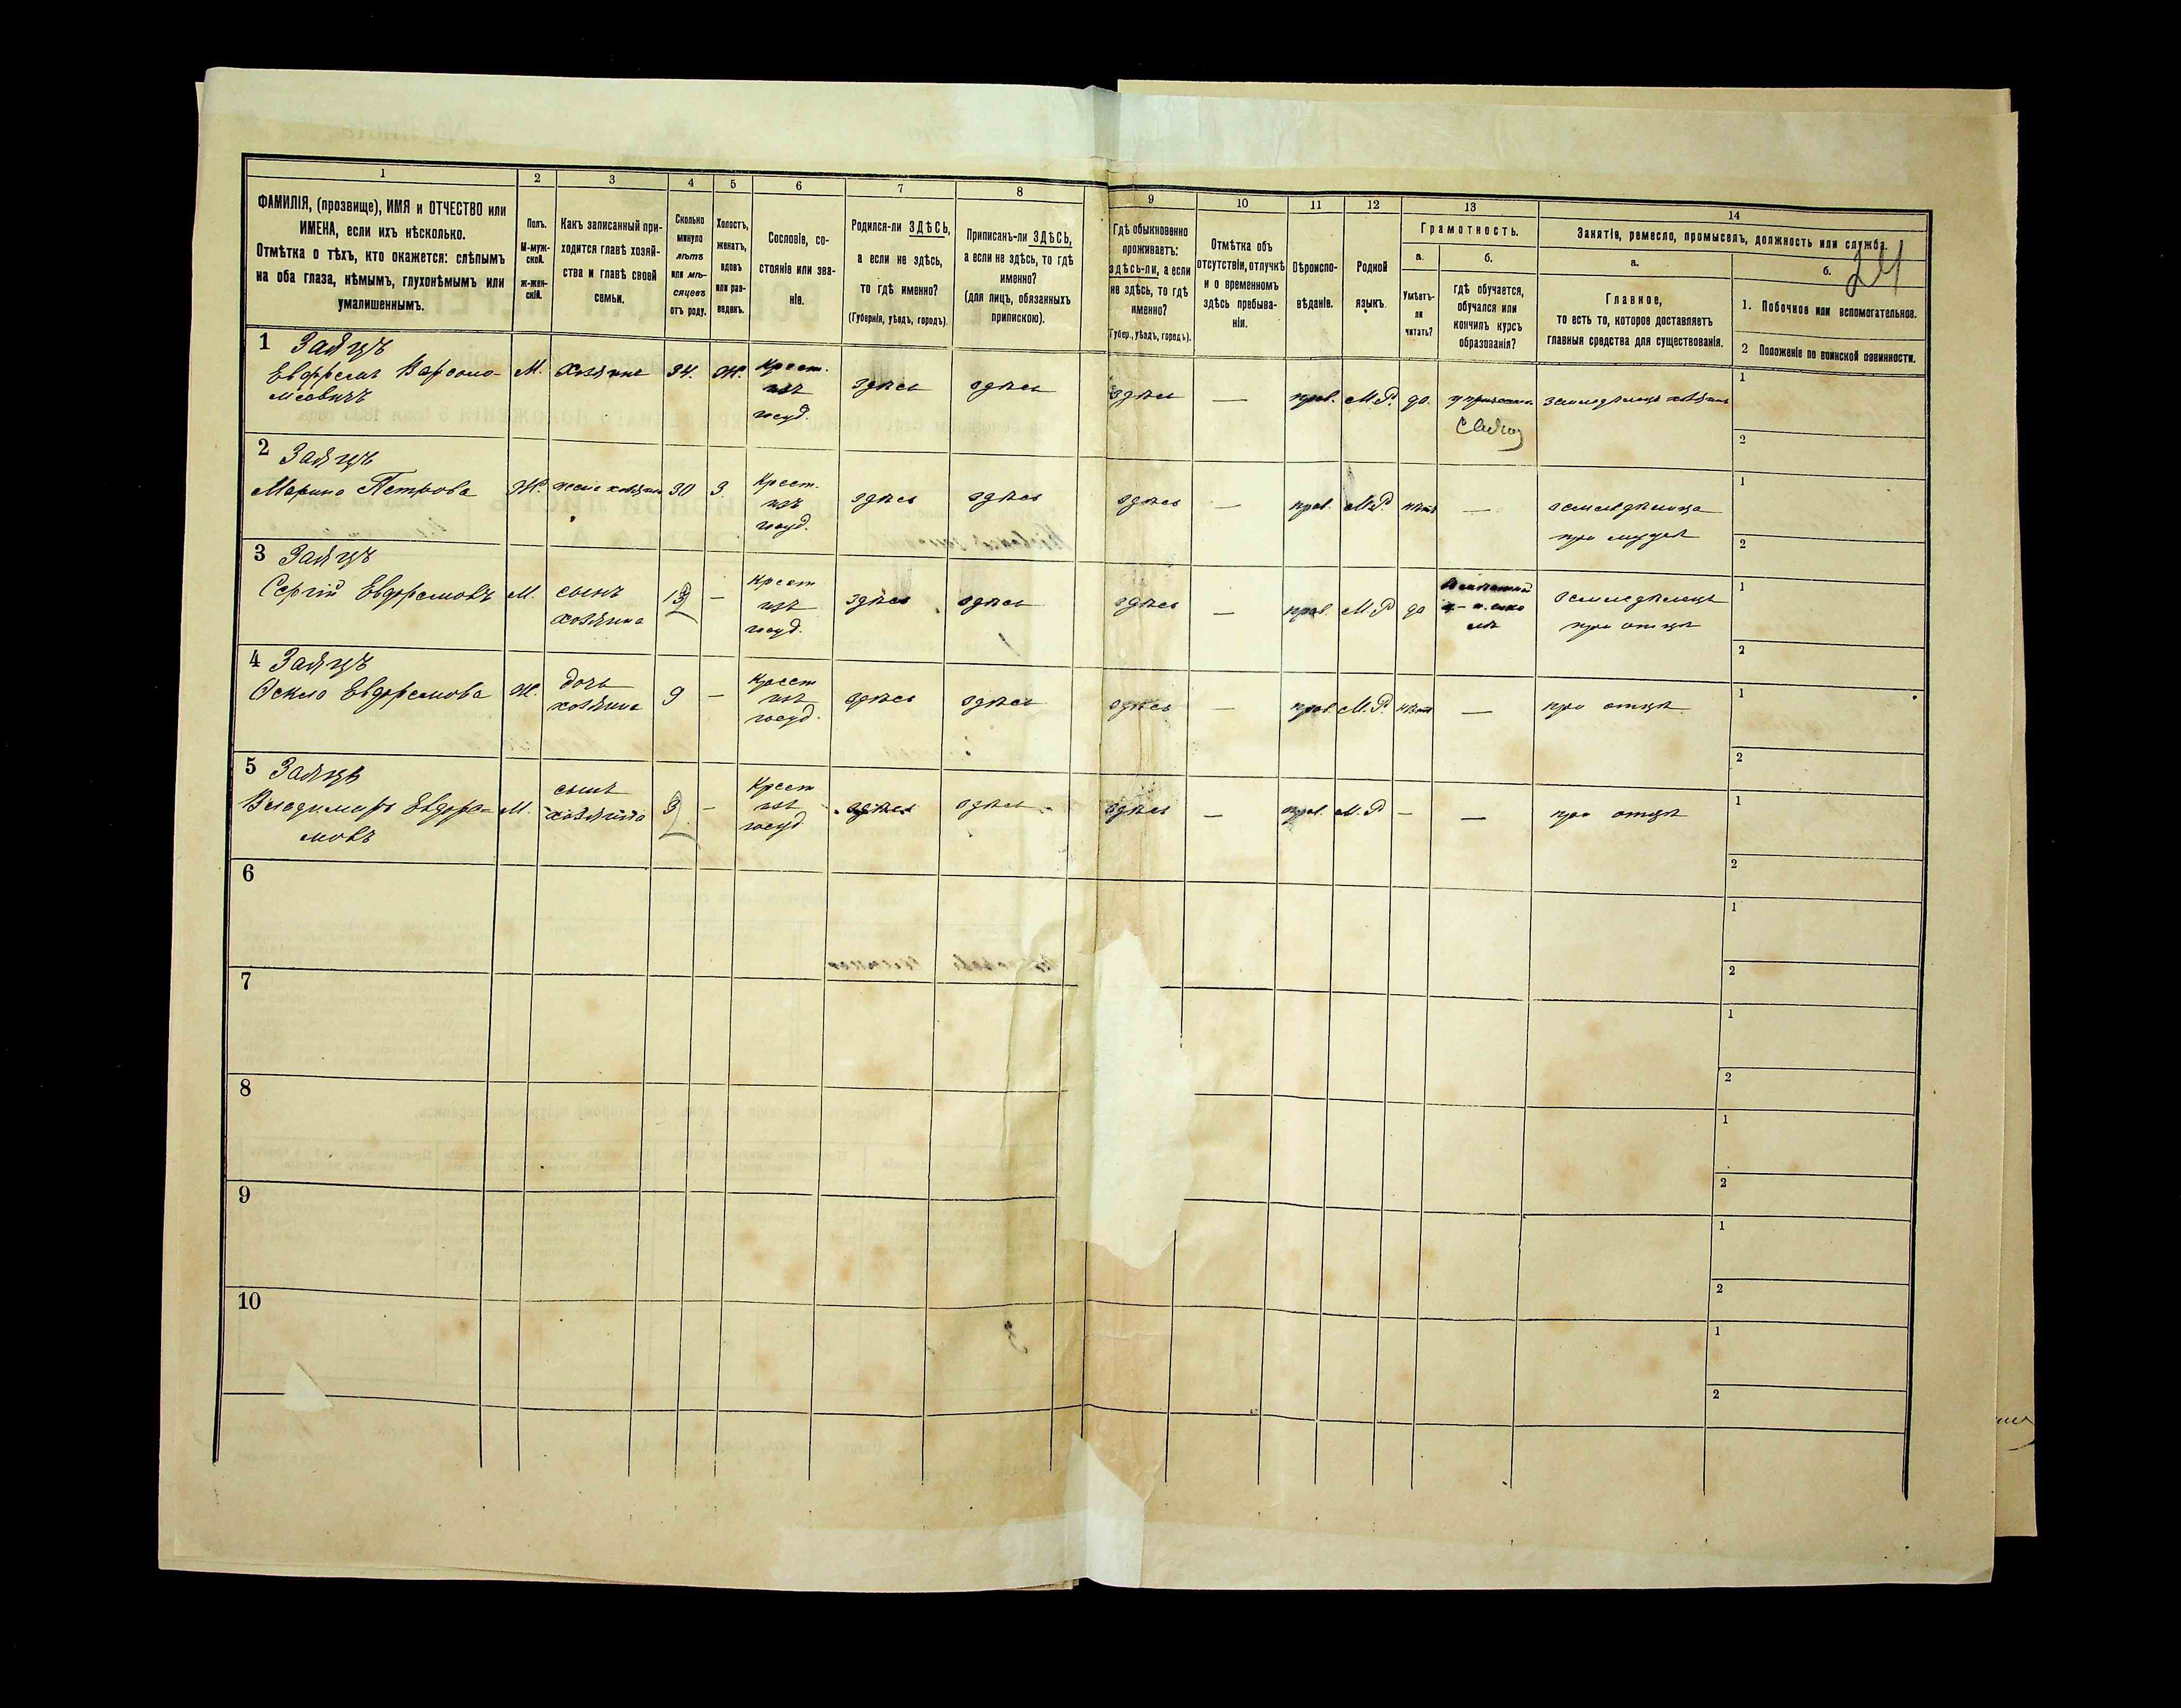 1 2 3 4 5 6 7 8 9 10 11 12 13 14
ФАМИЛІЯ, (прозвище), ИМЯ и ОТЧЕСТВО или
ИМЕНА, если ихъ нѣсколько.
Отмѣтка о тѣхъ, кто окажется: слѣпымъ
на оба глаза, нѣмымъ, глухонѣмымъ или
умалишеннымъ.
Полъ.
М-муж-
ской.
Ж-жен-
скій.
Какъ записанный при-
ходится главѣ хозяй-
ства и главѣ своей
семьи.
Сколько
минуло
лѣтъ
или мѣ-
сяцевъ
отъ роду.
Холостъ,
женатъ,
вдовъ
или раз-
веденъ.
Сословіе, со-
стояніе или зва-
ніе.
Родился-ли ЗДѢСЬ,
а если не здѣсь,
то гдѣ именно?
(Губернія, уѣздъ, городъ).
Приписанъ-ли ЗДѢСЬ,
а если не здѣсь, то гдѣ
именно?
(для лицъ, обязанныхъ
припискою).
Гдѣ обыкновенно
проживаетъ:
здѣсь-ли, а если
не здѣсь, то гдѣ
именно?
(Губер., уѣздъ, городъ).
Отмѣтка объ
отсутствіи, отлучкѣ
и о временномъ
здѣсь пребыва-
ніи.
Вѣроиспо-
вѣданіе.
Родной
языкъ.
Грамотность.
а.
Умѣетъ-
ли
читать?
б.
гдѣ обучается,
обучался или
кончилъ курсъ
образованія?
Занятія, ремесло, промыселъ, должность или служба.
а.
Главное,
то есть то, которое доставляетъ
главныя средства для существованія.
б.
24
1. Побочное или вспомогательное.
2 Положеніе по воинской повинности.
1 Заяцъ
Евфремъ Варѳоло-
меовичъ
М. хозяинъ 34. Ж. Крест.
изъ
госуд.
здѣсь здѣсь здѣсь — прав. М.Р. да. земледѣлецъ хозяинъ
1
2
2 Заяцъ
Марина Петрова
Ж. жена хозяина 30 З. Крест.
изъ
госуд.
здѣсь здѣсь здѣсь — прав. М.Р. нѣтъ — земледѣлица
при мужѣ
1
2
3 Заяцъ
Сергій Евфремовъ
М. сынъ
хозяина
— Крест
изъ
госуд.
здѣсь здѣсь здѣсь — прав. М.Р да
земледѣлецъ
при отцѣ
1
2
4 Заяцъ
Ѳекла Евфремова
Ж. дочь
хозяина
9 — Крест
изъ
госуд.
здѣсь здѣсь здѣсь — прав. М.Р. нѣтъ — при отцѣ
1
2
5 Заяцъ
Владимиръ Евфре-
мовъ
М. сынъ
хозяина
— Крест
изъ
госуд
здѣсь здѣсь здѣсь — прав. М.Р — — при отцѣ
1
2
6
1
2
7
1
2
8
1
2
9
1
2
10
1
2